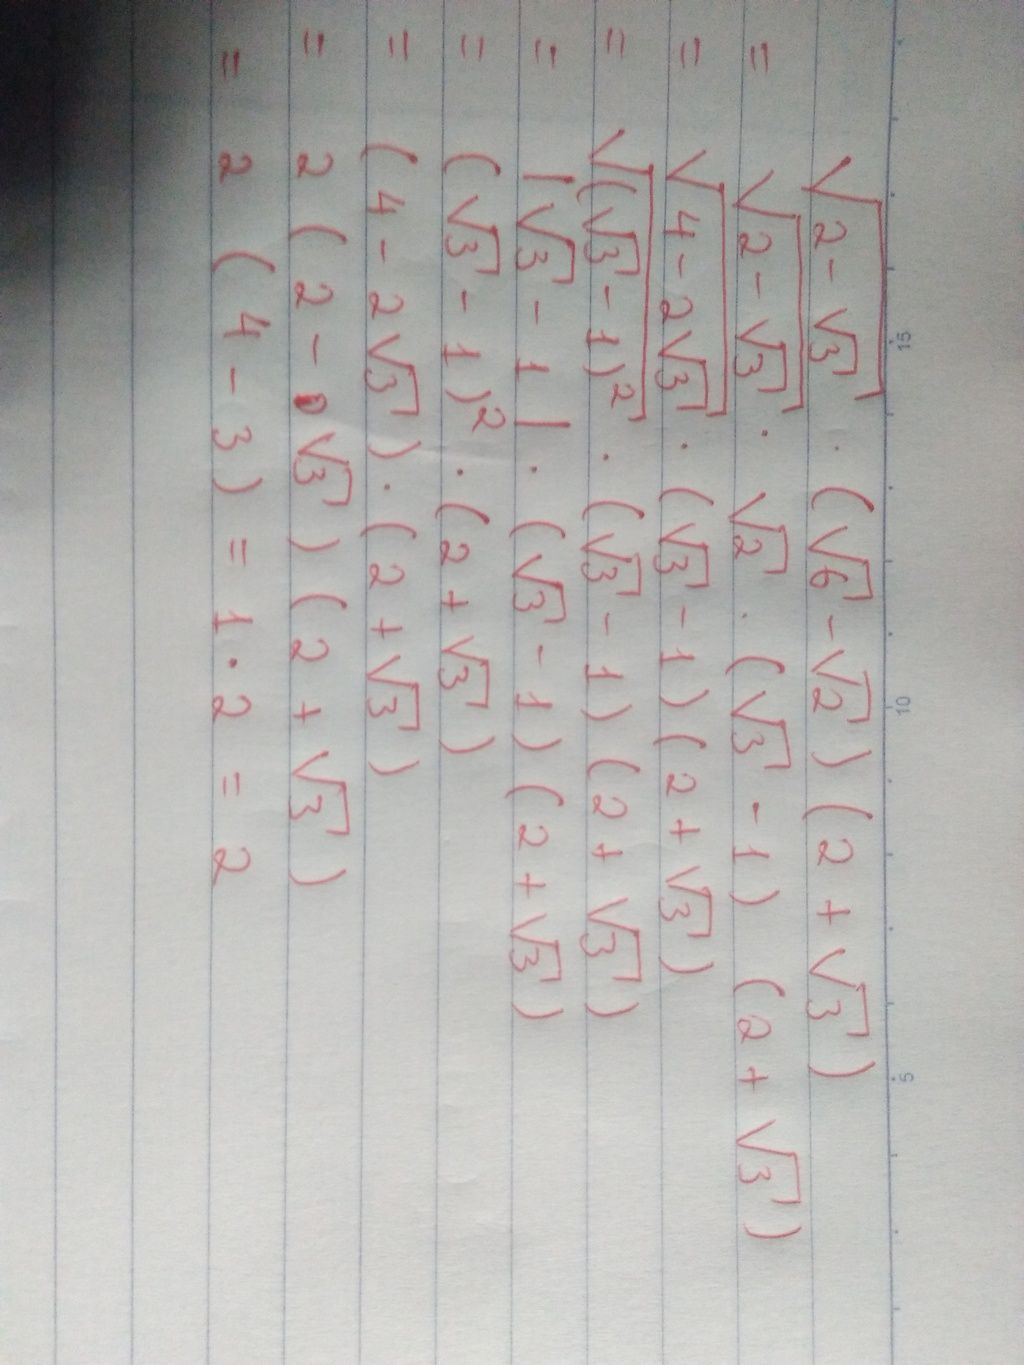 √(2-√3) · (√6-√2)(2+√3)
= √(2-√3) · √2 · (√3-1) (2+√3)
= √(4-2√3) · (√3-1)(2+√3)
= √((√3-1)²) · (√3-1)(2+√3)
= |√3-1| · (√3-1)(2+√3)
= (√3-1)² · (2+√3)
= (4-2√3) · (2+√3)
= 2(2-√3)(2+√3)
= 2 (4-3) = 1·2 = 2
15 10 5